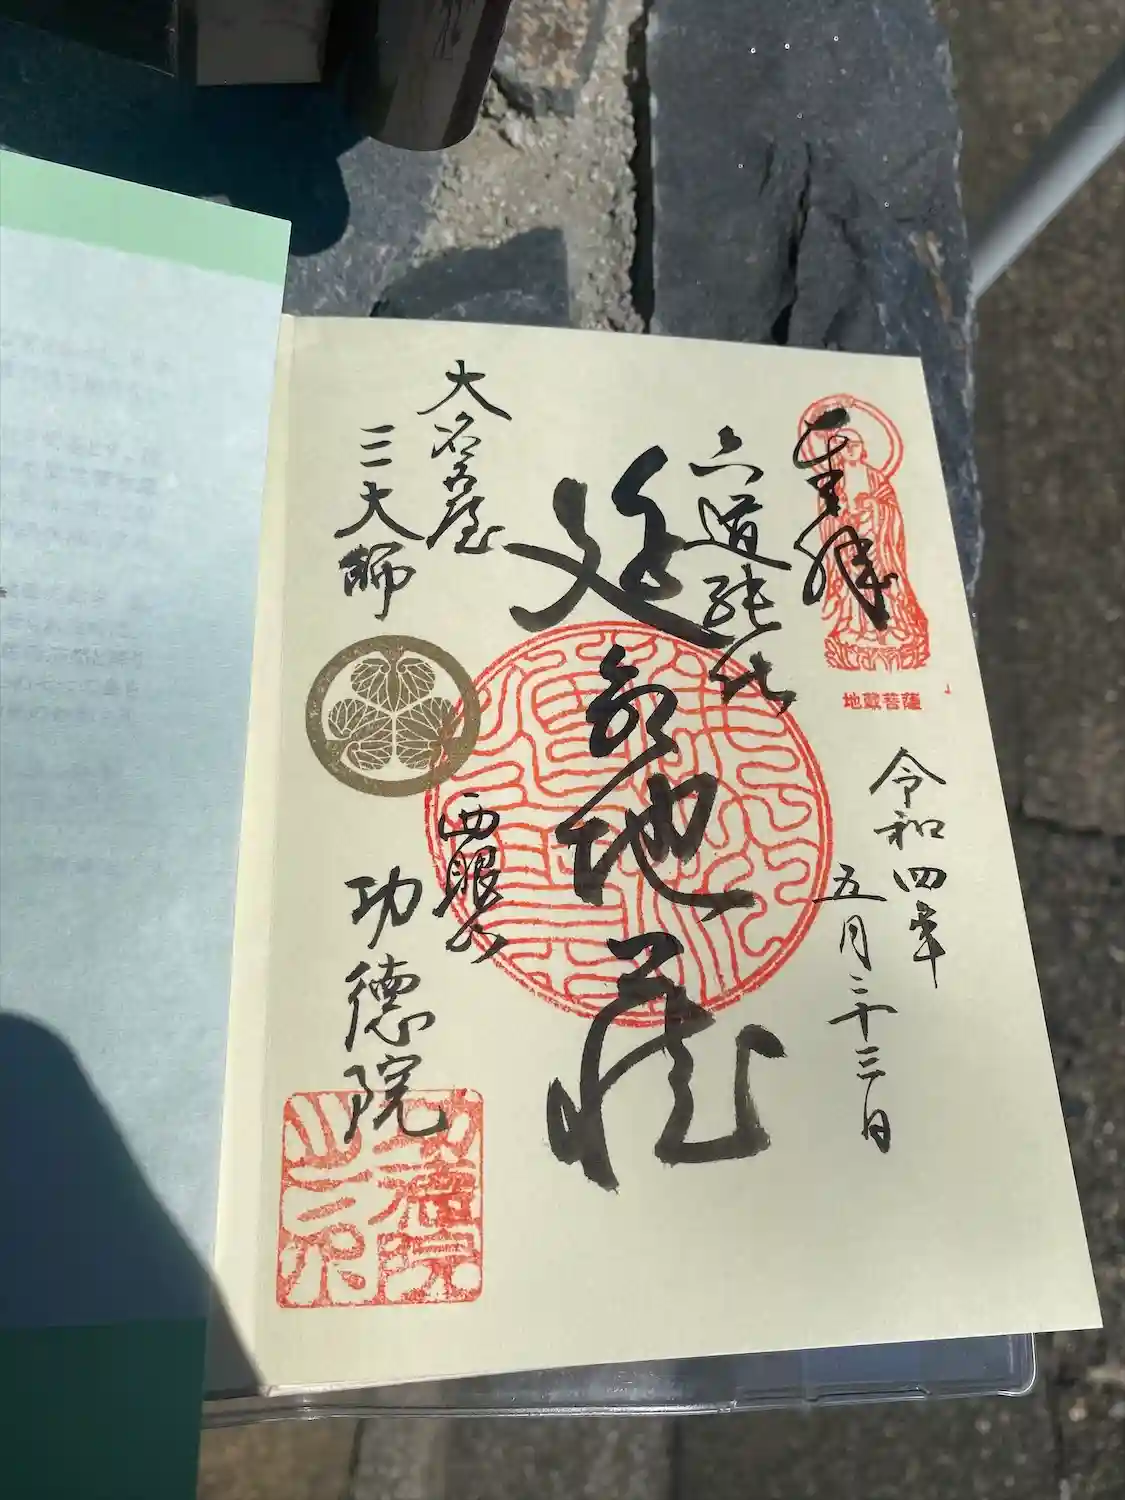 奉拝
地蔵菩薩
令和四年
五月二十三日
六道能化
延命地蔵
大名古屋
三大師
功徳院
功徳院
之印